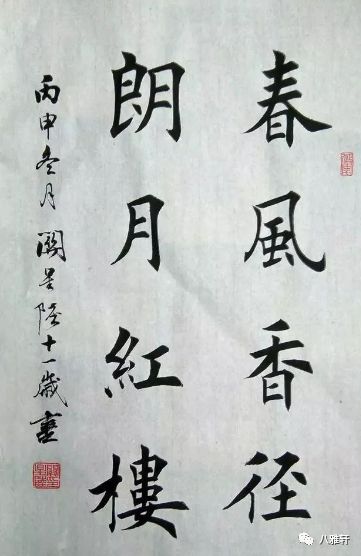 春風香径
朗月紅樓
丙申冬月關星陸十一歲書
八雅轩